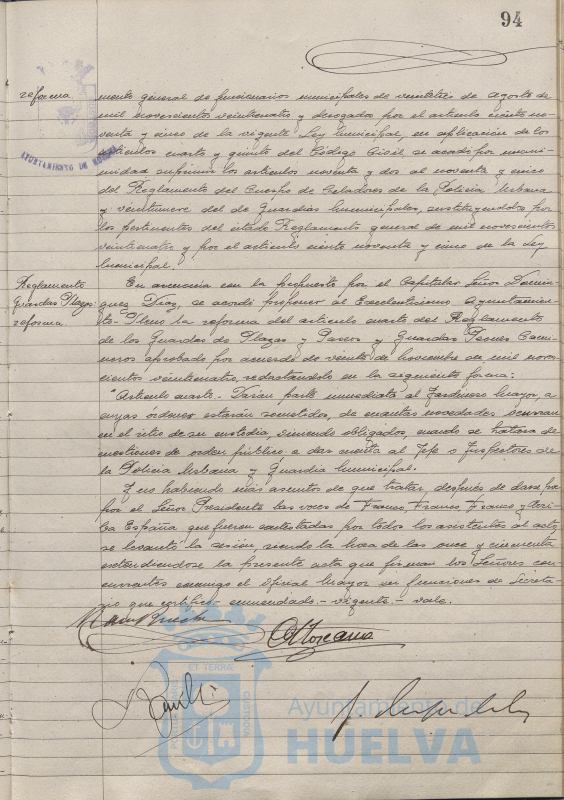 94
reforma
mento general de funcionarios municipales de veintitrés de agosto de
mil novecientos veinticuatro y derogados por el artículo ciento no-
venta y cinco de la vigente Ley Municipal, en aplicación de los
artículos cuarto y quinto del Código Civil se acordó por unani-
midad suprimir los artículos noventa y dos al noventa y cinco
del Reglamento del Cuerpo de Celadores de la Policía Urbana
y veintinueve del de Guardias Municipales, sustituyéndolos por
los pertinentes del citado Reglamento general de mil novecientos
veinticuatro y por el artículo ciento noventa y cinco de la Ley
Municipal.
AYUNTAMIENTO DE
Reglamento
Guardas Plazas:
reforma.
En armonía con lo propuesto por el Capitular Señor Domin-
guez Diaz, se acordó proponer al Excelentísimo Ayuntamien-
to Pleno la reforma del artículo cuarto del Reglamento
de los Guardas de Plazas y Paseos y Guardas Peones Cami-
neros aprobado por acuerdo de veinte de noviembre de mil nove-
cientos veinticuatro, redactándolo en la siguiente forma:
"Artículo cuarto.- Darán parte inmediata al Jardinero Mayor, a
cuyas órdenes estarán sometidos, de cuantas novedades ocurran
en el sitio de su custodia, viniendo obligados, cuando se tratara de
cuestiones de orden público, a dar cuenta al Jefe o Inspectores de
la Policía Urbana y Guardia Municipal.
Y no habiendo más asuntos de que tratar, después de darse por
por el Señor Presidente las voces de Franco, Franco, Franco y Arri-
ba España, que fueron contestadas por todos los asistentes al acto,
se levantó la sesión, siendo la hora de las once y cincuenta
extendiéndose la presente acta que firman los Señores con-
currentes conmigo el Oficial Mayor en funciones de Secreta-
rio que certifico. enmendado.- vigente.- vale.
ET TERRÆ
Ayuntamiento de
HUELVA